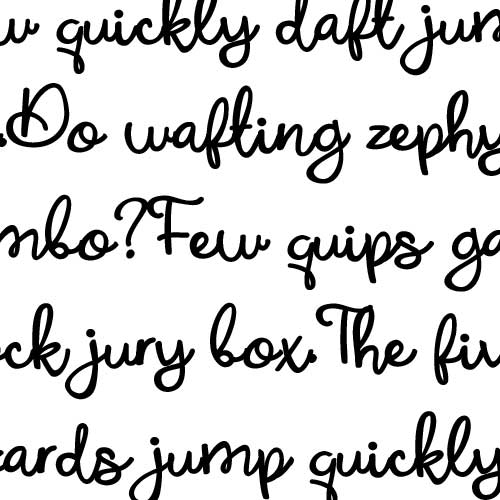 w quickly daft jum
.Do wafting zephy
mbo?Few quips ga
ock jury box.The fiv
zards jump quickly